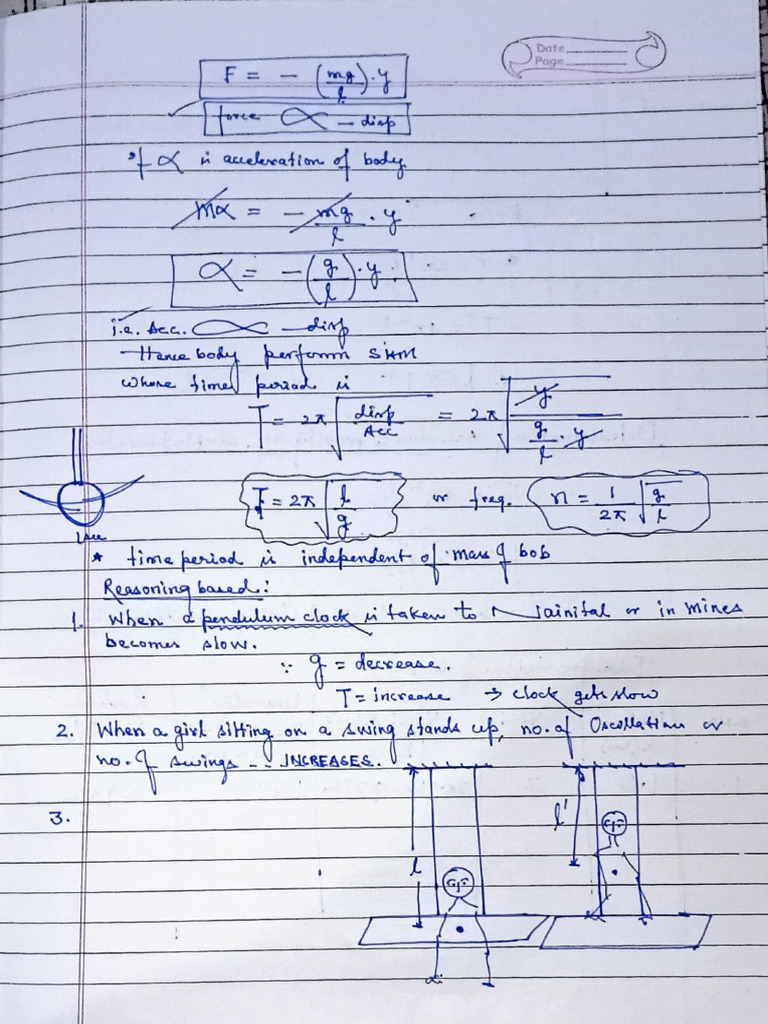 Date
Page
F = - (mg/l) . y
force ∝ - disp
If α is acceleration of body
mα = - mg/l . y
α = - (g/l) . y
i.e. Acc. ∝ - disp
Hence body perform SHM
whose time period is
T = 2π √(disp/Acc) = 2π √(y/(g/l . y))
T = 2π √(l/g) or freq. n = 1/2π √(g/l)
* time period is independent of mass of bob
Reasoning based:
1. When a pendulum clock is taken to Nainital or in mines
becomes slow.
∵ g = decrease.
T = increase → clock gets slow
2. When a girl sitting on a swing stands up, no. of Oscillation or
no. of swings -- INCREASES.
3.
l
l'